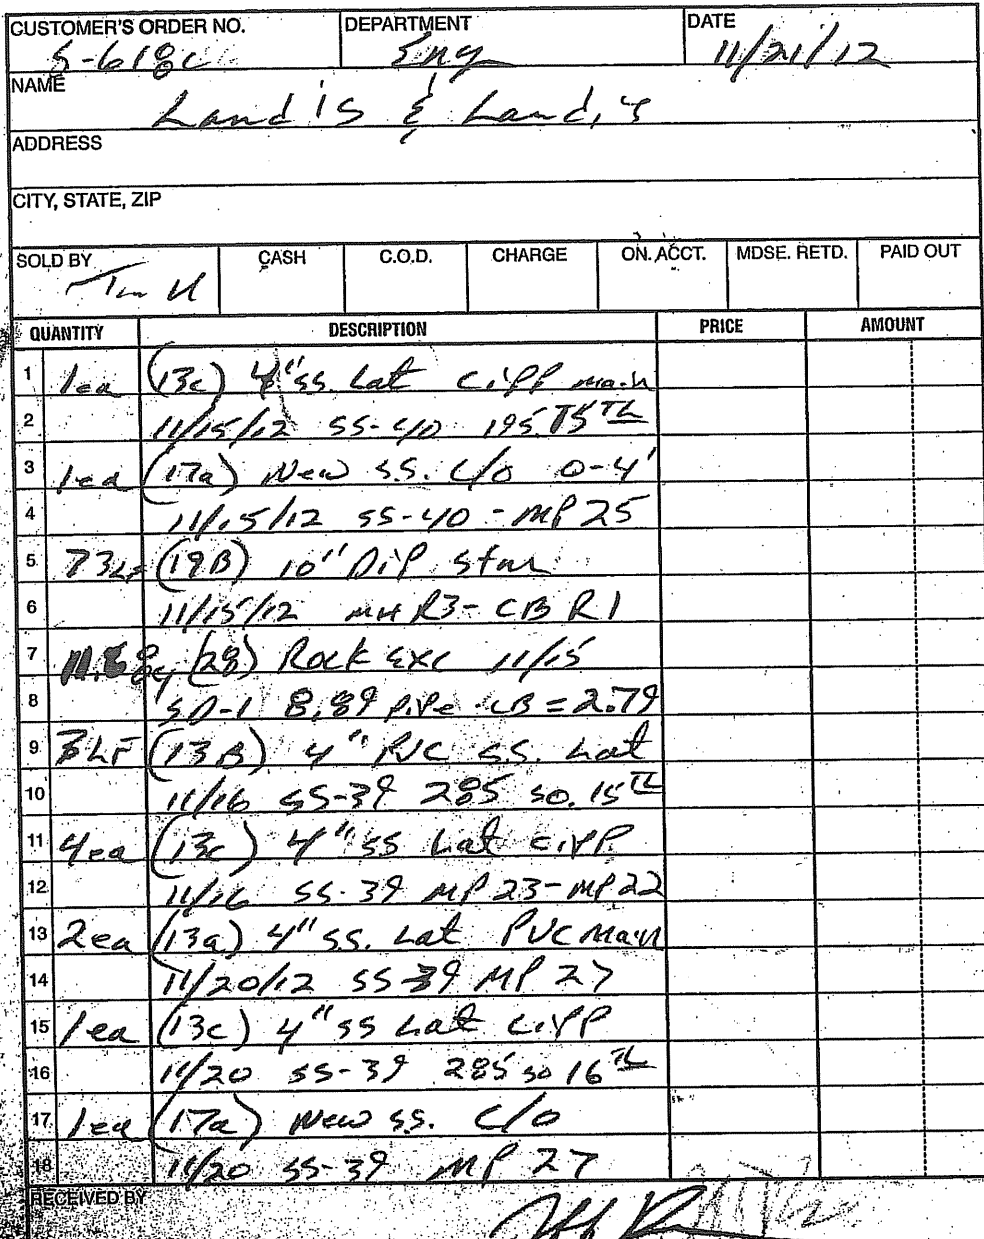 CUSTOMER'S ORDER NO. DEPARTMENT DATE
S-618C Eng 11/21/12
NAME
Landis & Landis
ADDRESS
CITY, STATE, ZIP
SOLD BY CASH C.O.D. CHARGE ON. ACCT. MDSE. RETD. PAID OUT
QUANTITY DESCRIPTION PRICE AMOUNT
1 1ea (13c) 4" ss. Lat CiPP main
2 11/15/12 SS-40 195 15TH
3 1ea (17a) New S.S. C/O 0-4'
4 11/15/12 SS-40 - MP 25
5 73LF (19B) 10" DiP Stm
6 11/15/12 MH R3 - CB R1
7 (28) Rock Exc 11/15
8 SD-1 8.89 PiPe CB = 2.79
9 3LF (13B) 4" PVC S.S. Lat
10 11/16 SS-39 285 SO. 15TH
11 4ea (13c) 4" SS Lat CiPP
12 11/16 SS-39 MP 23 - MP 22
13 2ea (13a) 4" SS. Lat PVC Main
14 11/20/12 SS-39 MP 27
15 1ea (13c) 4" SS Lat CiPP
16 11/20 SS-39 285 SO 16TH
17 1ea (17a) New SS. C/O
18 11/20 SS-39 MP 27
RECEIVED BY